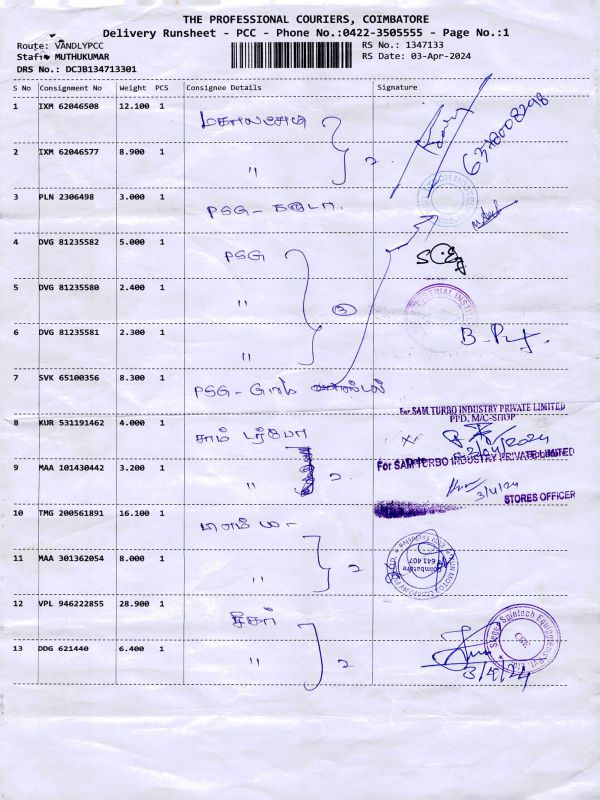 THE PROFESSIONAL COURIERS, COIMBATORE
Delivery Runsheet - PCC - Phone No.:0422-3505555 - Page No.:1
Route: VANDLYPCC
RS No.: 1347133
Staff: MUTHUKUMAR
RS Date: 03-Apr-2024
DRS No.: DCJB134713301
S No Consignment No Weight PCS Consignee Details Signature
1 IXM 62046508 12.100 1
6378008298
2 IXM 62046577 8.900 1 " 2
3 PLN 2306498 3.000 1 PSG -
4 DVG 81235582 5.000 1 PSG
5 DVG 81235580 2.400 1 " 3
6 DVG 81235581 2.300 1 "
7 SVK 65100356 8.300 1 PSG -
For SAM TURBO INDUSTRY PRIVATE LIMITED
PPD. M/C-SHOP
8 KUR 531191462 4.000 1 சாம் டர்போ
For SAM TURBO INDUSTRY PRIVATE LIMITED
9 MAA 101430442 3.200 1 " 2
3/4/24
STORES OFFICER
10 TMG 200561891 16.100 1
11 MAA 301362054 8.000 1 " 2
Coimbatore
641 407
12 VPL 946222855 28.900 1
13 DDG 621440 6.400 1 " 2
3/4/24